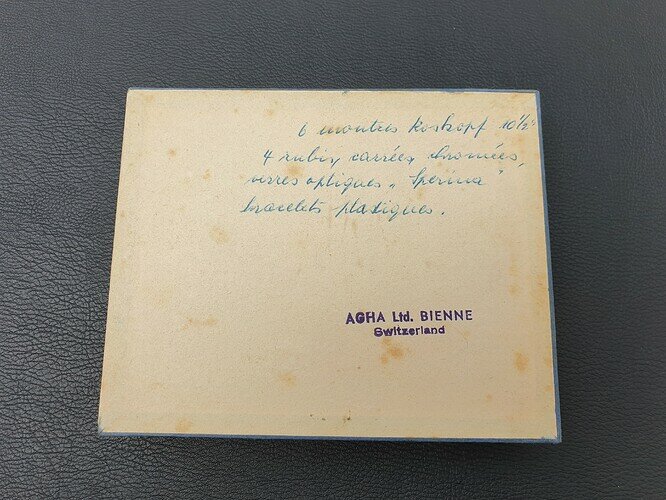 6 montres Roskopf 10½"
4 rubis, carrées, chromées,
verres optiques, "Sperina"
bracelets plastiques.
AGHA Ltd. BIENNE
Switzerland